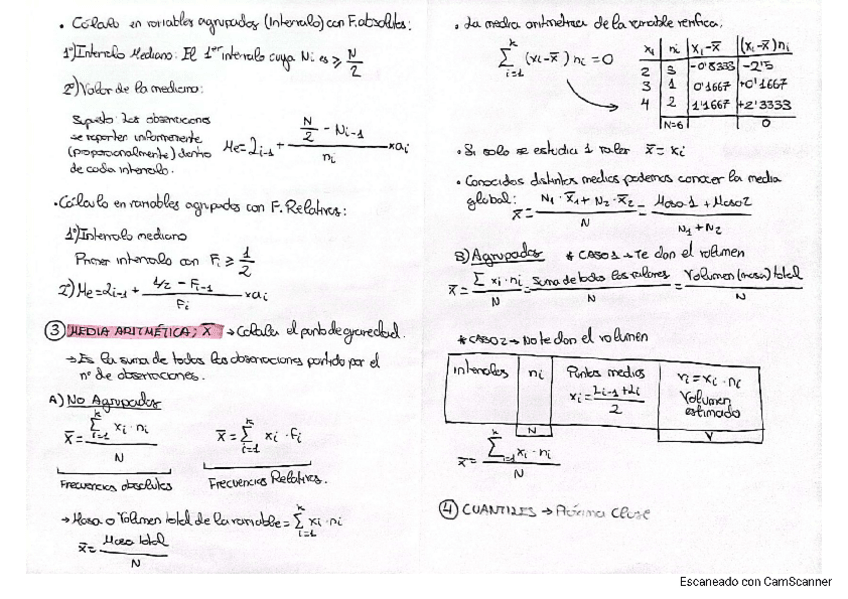 • Cálculo en variables agrupadas (Intervalo) con F. absolutas:
1º) Intervalo Mediano: El 1er intervalo cuya Ni es ≥ N/2
2º) Valor de la mediana:
Supuesto: Las observaciones
se reparten uniformemente
(proporcionalmente) dentro
de cada intervalo.
Me = Li-1 + (N/2 - Ni-1)/ni × ai
• Cálculo en variables agrupadas con F. Relativas:
1º) Intervalo mediano
Primer intervalo con Fi ≥ 1/2
2º) Me = Li-1 + (1/2 - Fi-1)/fi × ai
③ MEDIA ARITMÉTICA; x̄ → Calcula el punto de gravedad.
→ Es la suma de todas las observaciones partido por el
nº de observaciones.
A) No Agrupados
x̄ = Σ(i=1, k) xi · ni / N
x̄ = Σ(i=1, k) xi · fi
Frecuencias absolutas
Frecuencias Relativas.
→ Masa o Volumen total de la variable = Σ(i=1, k) xi · ni
x̄ = Masa total / N
• La media aritmética de la variable verifica:
Σ(i=1, k) (xi - x̄) ni = 0
xi ni xi-x̄ (xi-x̄)ni
2 3 -0'8333 -2'5
3 1 0'1667 +0'1667
4 2 1'1667 +2'3333
N=6 0
• Si solo se estudia 1 valor x̄ = xi
• Conocidos distintas medias podemos conocer la media
global: x̄ = (N1 · x̄1 + N2 · x̄2) / N = (Masa 1 + Masa 2) / (N1 + N2)
B) Agrupados * CASO 1 → Te dan el volumen
x̄ = Σ xi · ni / N = Suma de todos los valores / N = Volumen (masa) total / N
* CASO 2 → No te dan el volumen
intervalos ni Puntos medios xi = (Li-1 + Li)/2 vi = xi · ni Volumen estimado
N V
x̄ = Σ(i=1, k) xi · ni / N
④ CUANTILES → Próxima Clase
Escaneado con CamScanner